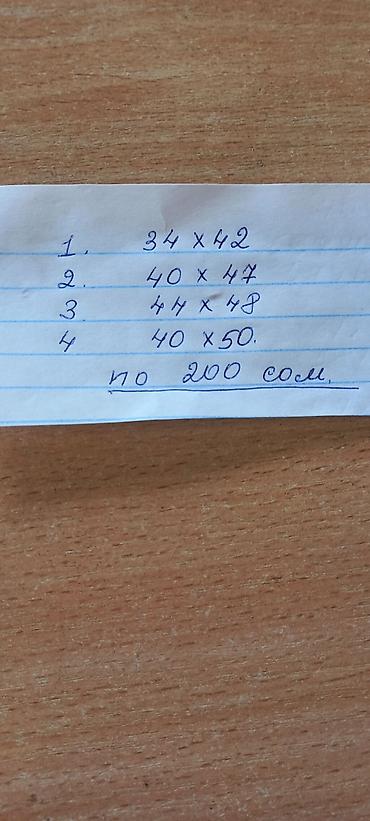 1. 34 x 42
2. 40 x 47
3. 44 x 48
4 40 x 50.
по 200 сом.